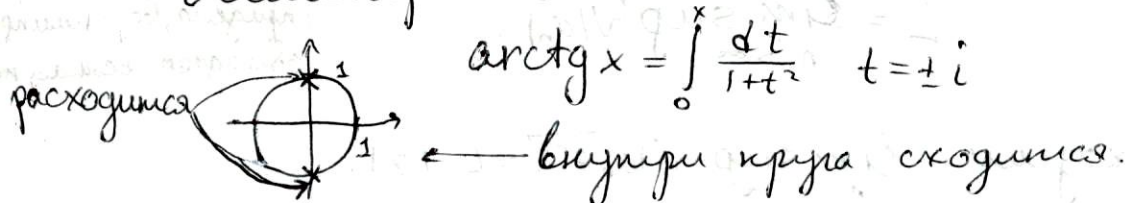 arctg x = ∫₀ˣ dt/(1+t²) t = ± i
расходится
1
1
внутри круга сходится.